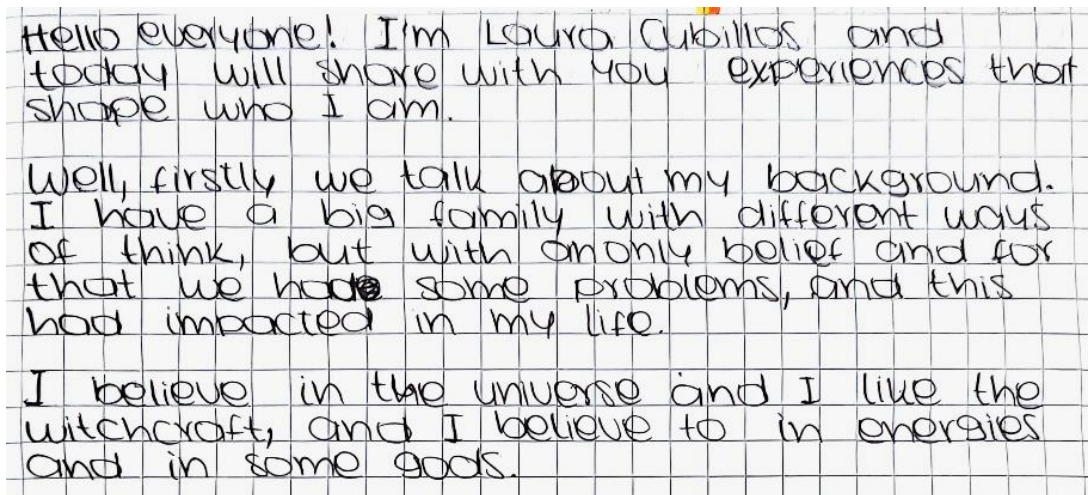 Hello everyone! I'm Laura Cubillos and
today will share with you experiences that
shape who I am.
Well, firstly we talk about my background.
I have a big family with different ways
of think, but with an only belief and for
that we had some problems, and this
had impacted in my life.
I believe in the universe and I like the
witchcraft, and I believe to in energies
and in some gods.